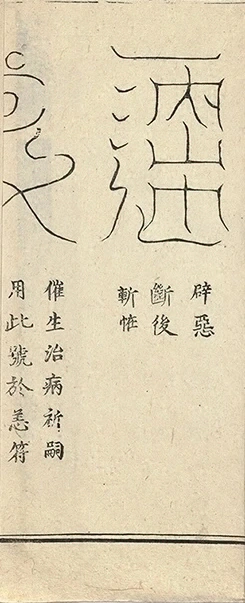 辟惡
斷後
斬恠
催生治病祈嗣
用此號於恙符